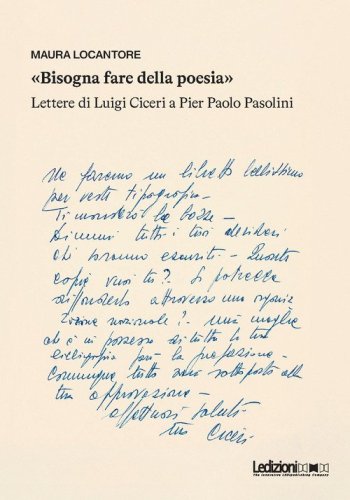 MAURA LOCANTORE
«Bisogna fare della poesia»
Lettere di Luigi Ciceri a Pier Paolo Pasolini
Ne faremo un libretto bellissimo
per veste tipografica –
Ti manderò le bozze –
Dimmi tutti i tuoi desideri
che saranno esauditi – Quante
copie vuoi tu? – Si potrebbe
diffonderlo attraverso una organiz
zazione nazionale? – Mia moglie
che è in possesso di tutta la tua
bibliografia farà la prefazione –
Comunque tutto sarà sottoposto alla
tua approvazione –
affettuosi saluti
tuo Ciceri
Ledizioni
The Innovative LEDIpublishing Company